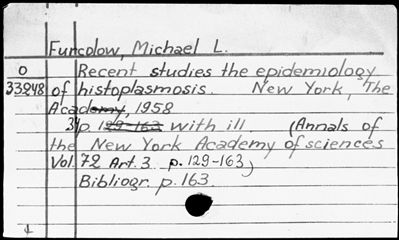 Furcolow, Michael L.
O Recent studies the epidemiology
33248 of histoplasmosis. New York, The
Academy, 1958
34p. 129-163 with ill (Annals of
the New York Academy of sciences
Vol. 72 Art. 3 p. 129-163)
Bibliogr. p. 163.